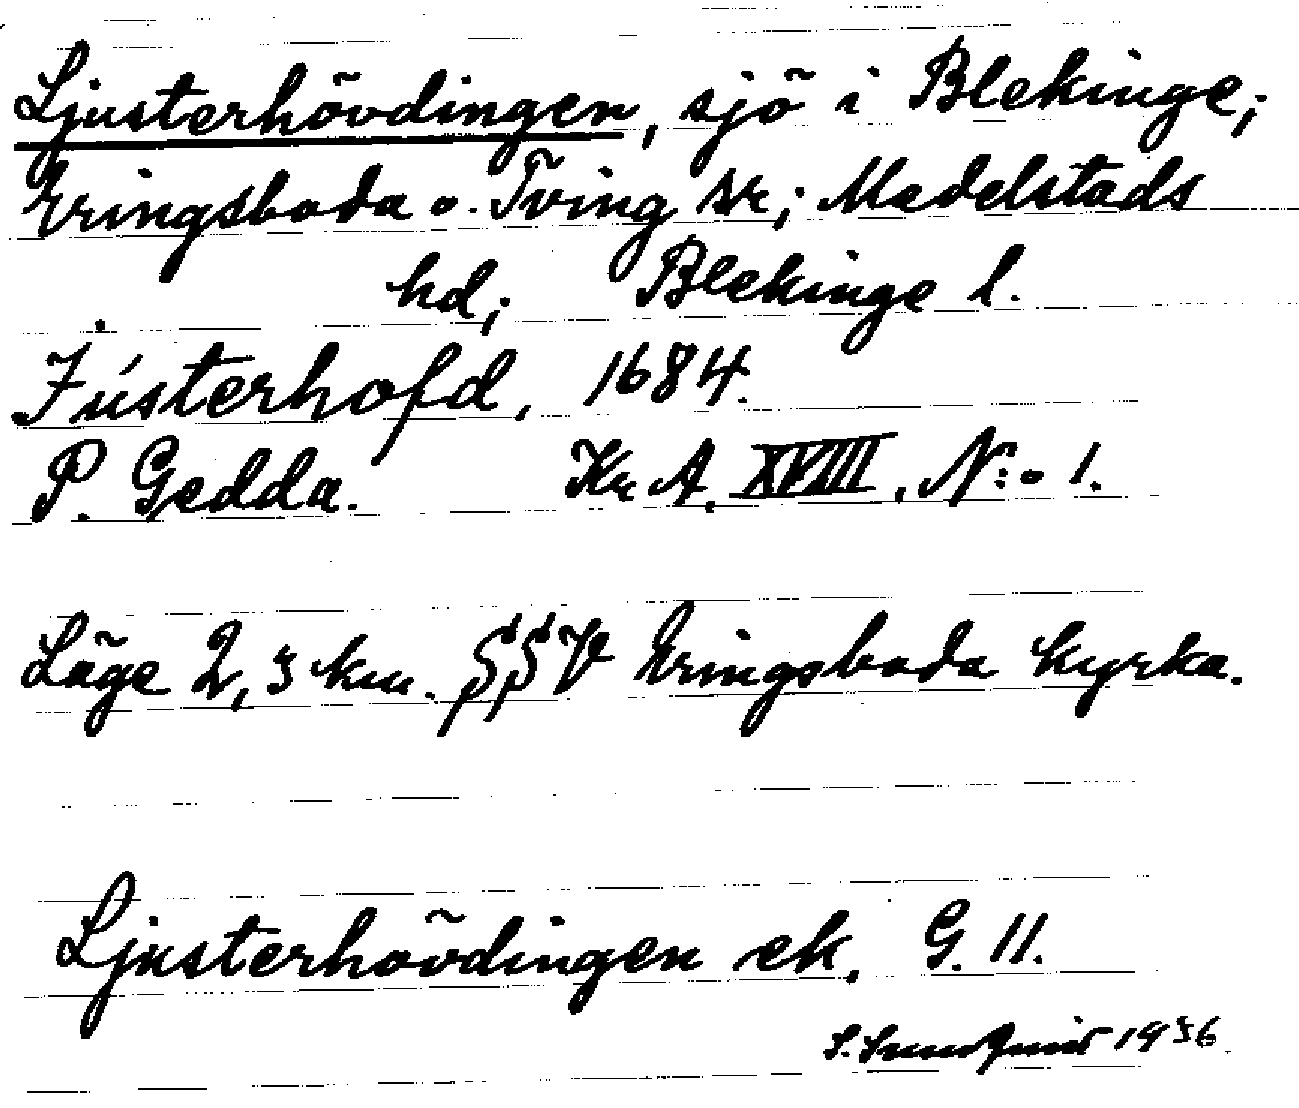 Ljusterhövdingen, sjö i Blekinge;
Eringsboda o. Tving sr; Medelstads
hd; Blekinge l.
Jústerhofd, 1684.
P. Gedda. Kr A. XVIII, N:o 1.
Läge 2,5 km. SSV Eringsboda kyrka.
Ljusterhövdingen ek. G. 11.
S. Sundquist 1936